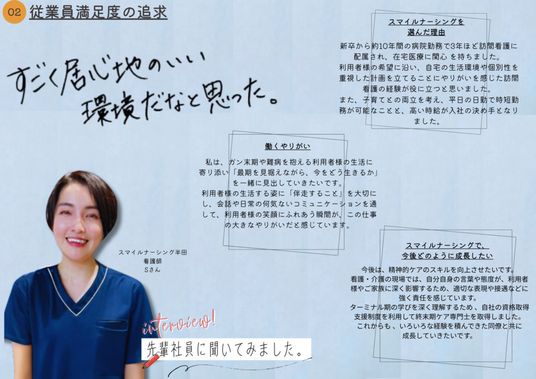 02 従業員満足度の追求
すごく居心地のいい
環境だなと思った。
スマイルナーシングを
選んだ理由
新卒から約10年間の病院勤務で3年ほど訪問看護に
配属され、在宅医療に関心を持ちました。
利用者様の希望に沿い、自宅の生活環境や個別性を
重視した計画を立てることにやりがいを感じた訪問
看護の経験が役に立つと思いました。
また、子育てとの両立を考え、平日の日勤で時短勤
務が可能なことと、高い時給が入社の決め手となり
ました。
働くやりがい
私は、ガン末期や難病を抱える利用者様の生活に
寄り添い「最期を見据えながら、今をどう生きるか」
を一緒に見出していきたいです。
利用者様の生活する姿に「伴走すること」を大切に
し、会話や日常の何気ないコミュニケーションを通
して、利用者様の笑顔にふれあう瞬間が、この仕事
の大きなやりがいだと感じています。
スマイルナーシング半田
看護師
Sさん
interview!
先輩社員に聞いてみました。
スマイルナーシングで、
今後どのように成長したい
今後は、精神的ケアのスキルを向上させたいです。
看護・介護の現場では、自分自身の言葉や態度が、利用者
様やご家族に深く影響するため、適切な表現や接遇などに
強く責任を感じています。
ターミナル期の学びを深く理解するため、自社の資格取得
支援制度を利用して終末期ケア専門士を取得しました。
これからも、いろいろな経験を積んできた同僚と共に
成長していきたいです。